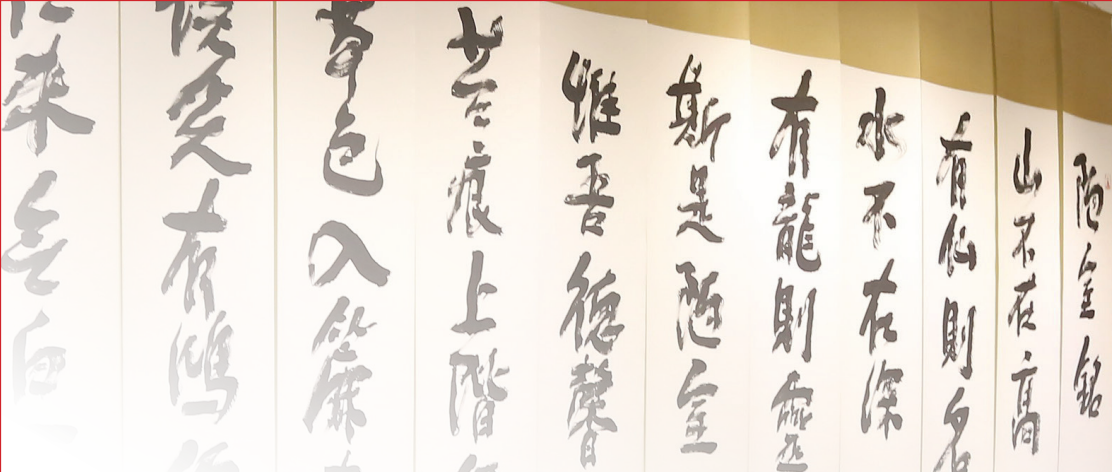 陋室銘
山不在高
有仙則名
水不在深
有龍則靈
斯是陋室
惟吾德馨
苔痕上階
草色入簾
談笑有鴻
來無白